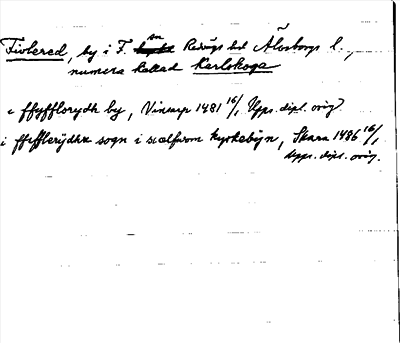 Fivlered, by i F. sn Redvägs hd Älvsborgs l.,
numera kallad Karlskoga
i ffyfflerydh by, Vinsarp 1481 16/1 Upps. dipl. orig.
i ffyfflerÿdhæ sogn i sielfwom kyrkebÿn, Skara 1486 16/1
Upps. dipl. orig.